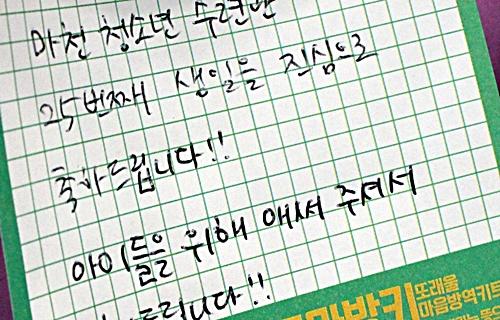 마천 청소년 수련관
25번째 생일을 진심으로
축하드립니다!!
아이들을 위해 애써 주셔서
드립니다!!
또래울
마음방역키트